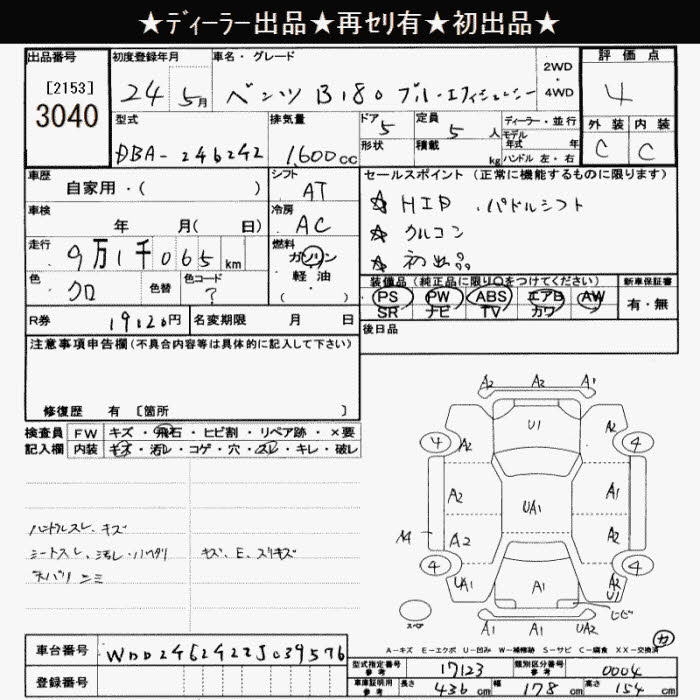 ★ディーラー出品★再セリ有★初出品★
出品番号 初度登録年月 車名・グレード 評価点
[2153] 24 5月 ベンツ B180 ブルーエフィシェンシー 2WD・4WD 4
3040
型式 排気量 ドア 定員 ディーラー・並行 外装 内装
DBA-246242 1,600cc 5 5人 モデル年式 年 C C
形状 積載 kg ハンドル 左・右
車歴 シフト セールスポイント (正常に機能するものに限ります)
自家用・( ) AT ☆ HID .パドルシフト
車検 冷房 ☆ クルコン
年 月(日) AC ☆ 初出品
走行 燃料
9万1千065km ガソリン・軽油・( ) 装備品(純正品に限り〇をつけてください) 新車保証書
色 色替 色コード PS PW ABS エアB AW 有・無
クロ ? SR ナビ TV カワ
R券 19120円 名変期限 月 日 後日品
注意事項申告欄(不具合内容等は具体的に記入して下さい)
修復歴 有 [箇所 ]
検査員 FW キズ・飛石・ヒビ割・リペア跡・×要
記入欄 内装 キズ・汚レ・コゲ・穴・スレ・キレ・破レ
ハンドルスレ、キズ
シートスレ、汚レ・ キズ、E、スリキズ
A2 A2 A1
U1
4 A2 A2 4
A2 UA1 A1
A4 A2 A1
4 4
UA1 A1 A2 U1
ヒビ
スペア A1 A1 UA2
A-キズ E-エクボ U-凹み W-補修跡 S-サビ C-腐食 XX-交換済
車台番号 WDD2462422J039576
登録番号
型式指定番号 参考 17123 類別区分番号 参考 0004
車庫証明用 参考 長さ 436cm 幅 178cm 高さ 154cm